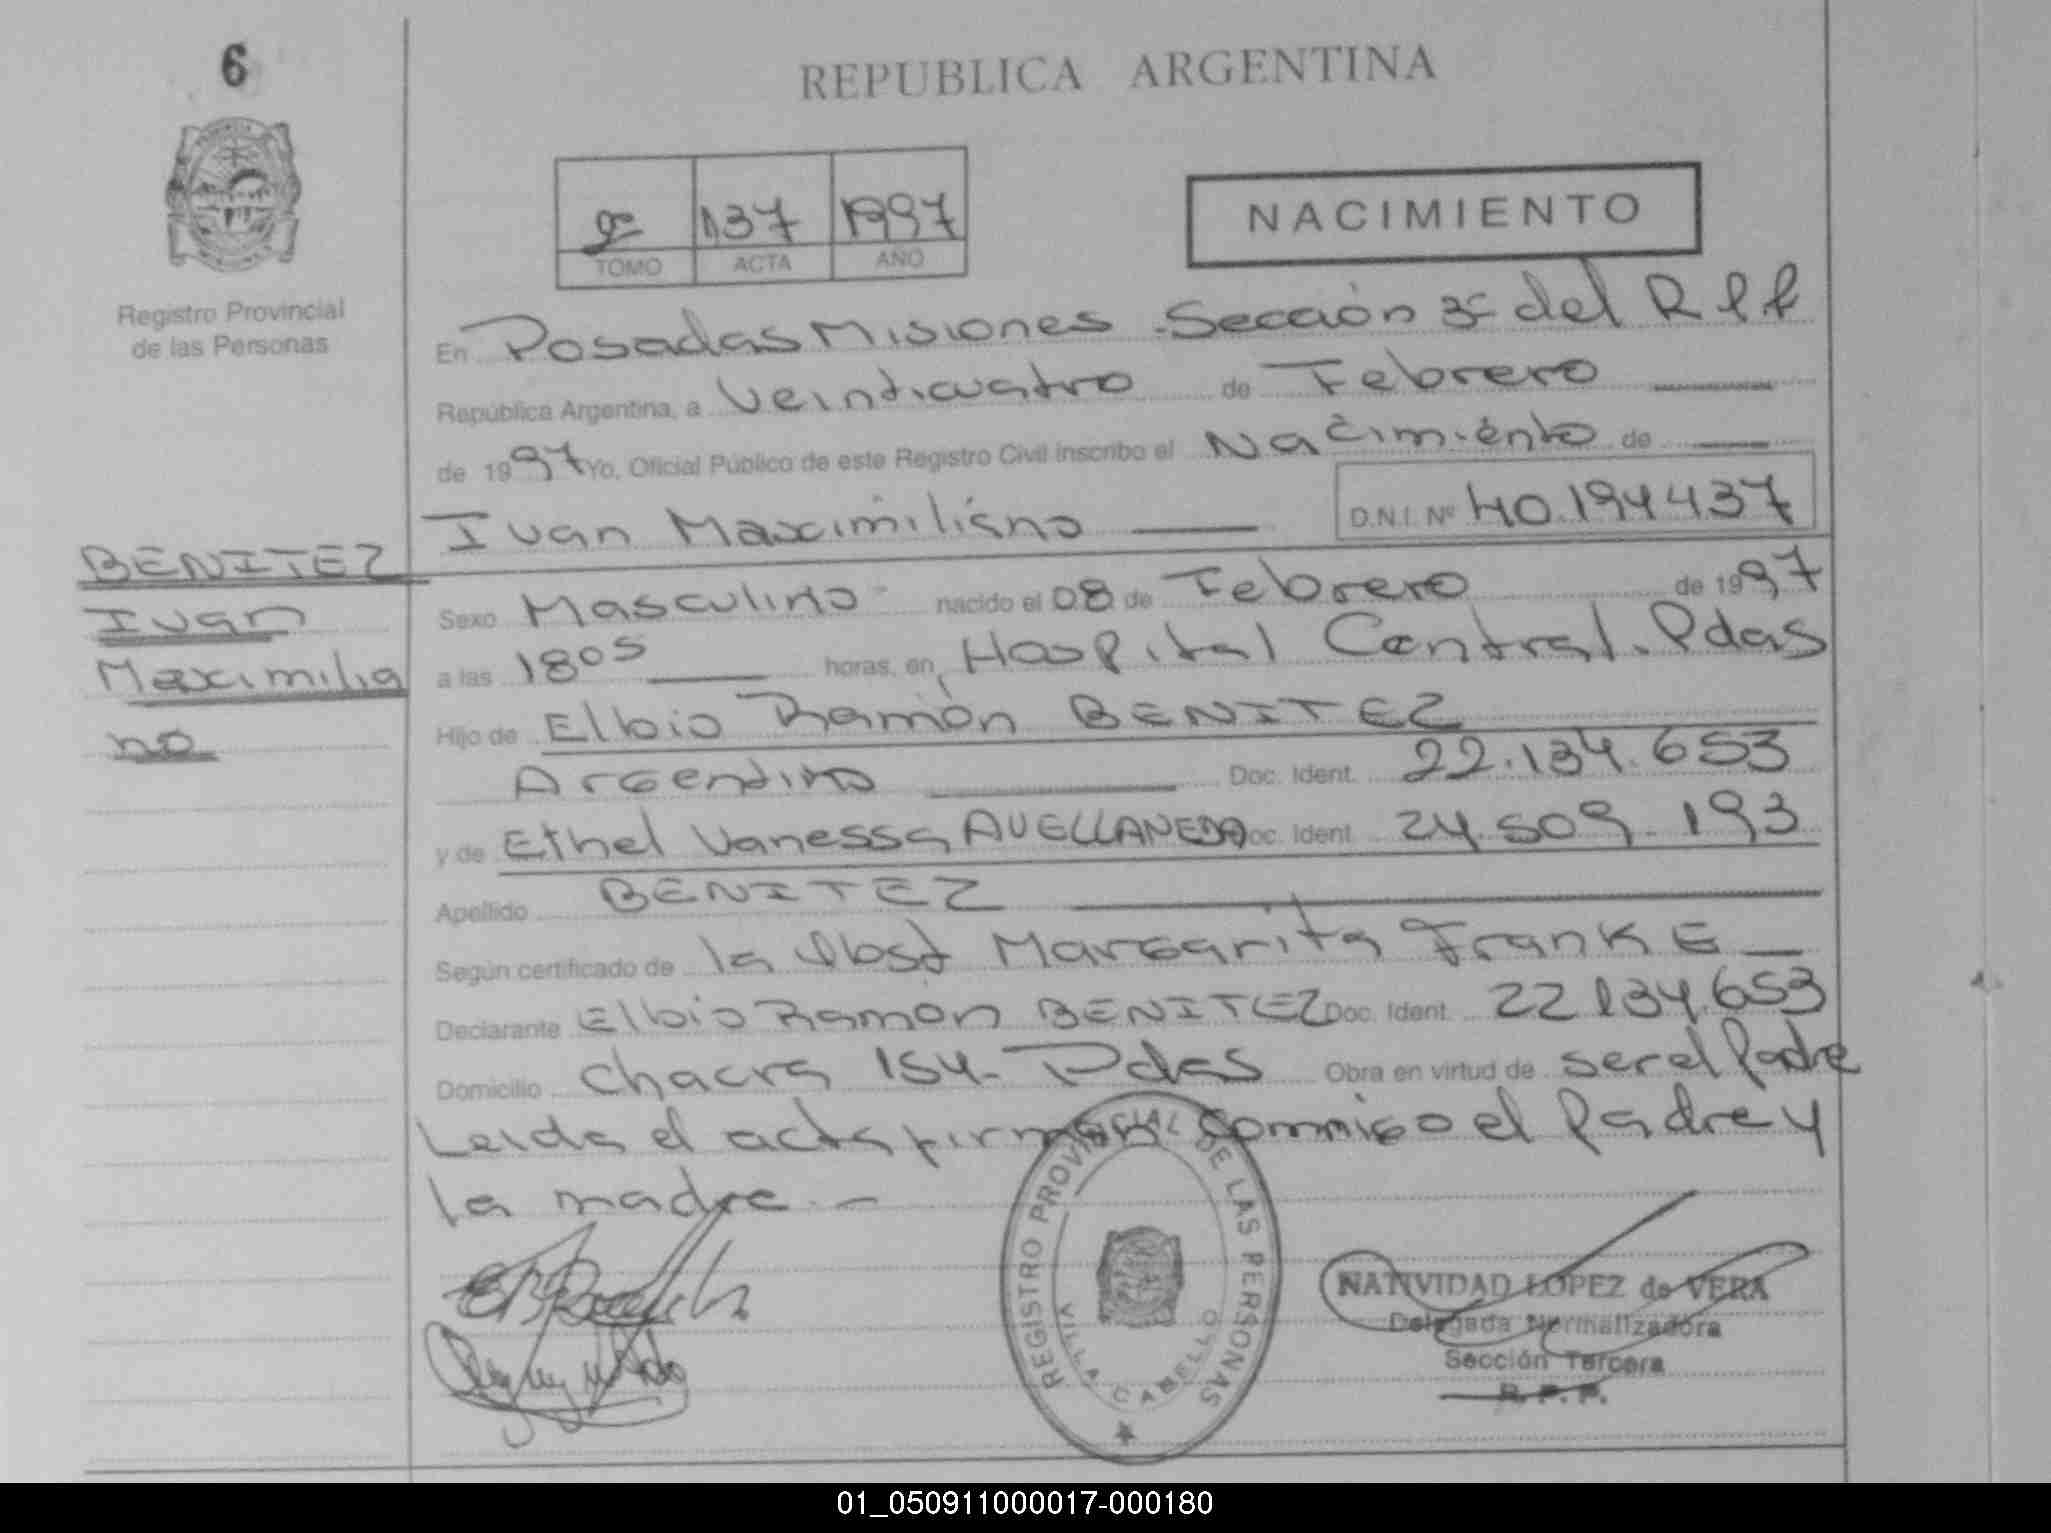 6
REPUBLICA ARGENTINA
137 1997
TOMO ACTA AÑO
NACIMIENTO
Registro Provincial
de las Personas
En Posadas Misiones Sección 3ª del R P P
República Argentina, a Veinticuatro de Febrero
de 1997 Yo, Oficial Público de este Registro Civil inscribo el Nacimiento de
Ivan Maximiliano D.N.I. Nº 40.194437
BENITEZ
Ivan
Maximilia
no
Sexo Masculino nacido el 08 de Febrero de 1997
a las 1805 horas, en Hospital Central. Pdas
Hijo de Elbio Ramón BENITEZ
Argentino Doc. Ident. 22.134.653
y de Ethel Vanessa AVELLANEDA Doc. Ident. 24.509.193
Apellido BENITEZ
Según certificado de la Obst Margarita FrankE
Declarante Elbio Ramon BENITEZ Doc. Ident. 22134.653
Domicilio Chacra 154- Pdas Obra en virtud de ser el Padre
Leida el acta firman conmigo el Padre y
la madre.-
REGISTRO PROVINCIAL DE LAS PERSONAS
VILLA CABELLO
NATIVIDAD LOPEZ de VERA
Delegada Normalizadora
Sección Tercera
R.P.P.
01_050911000017-000180